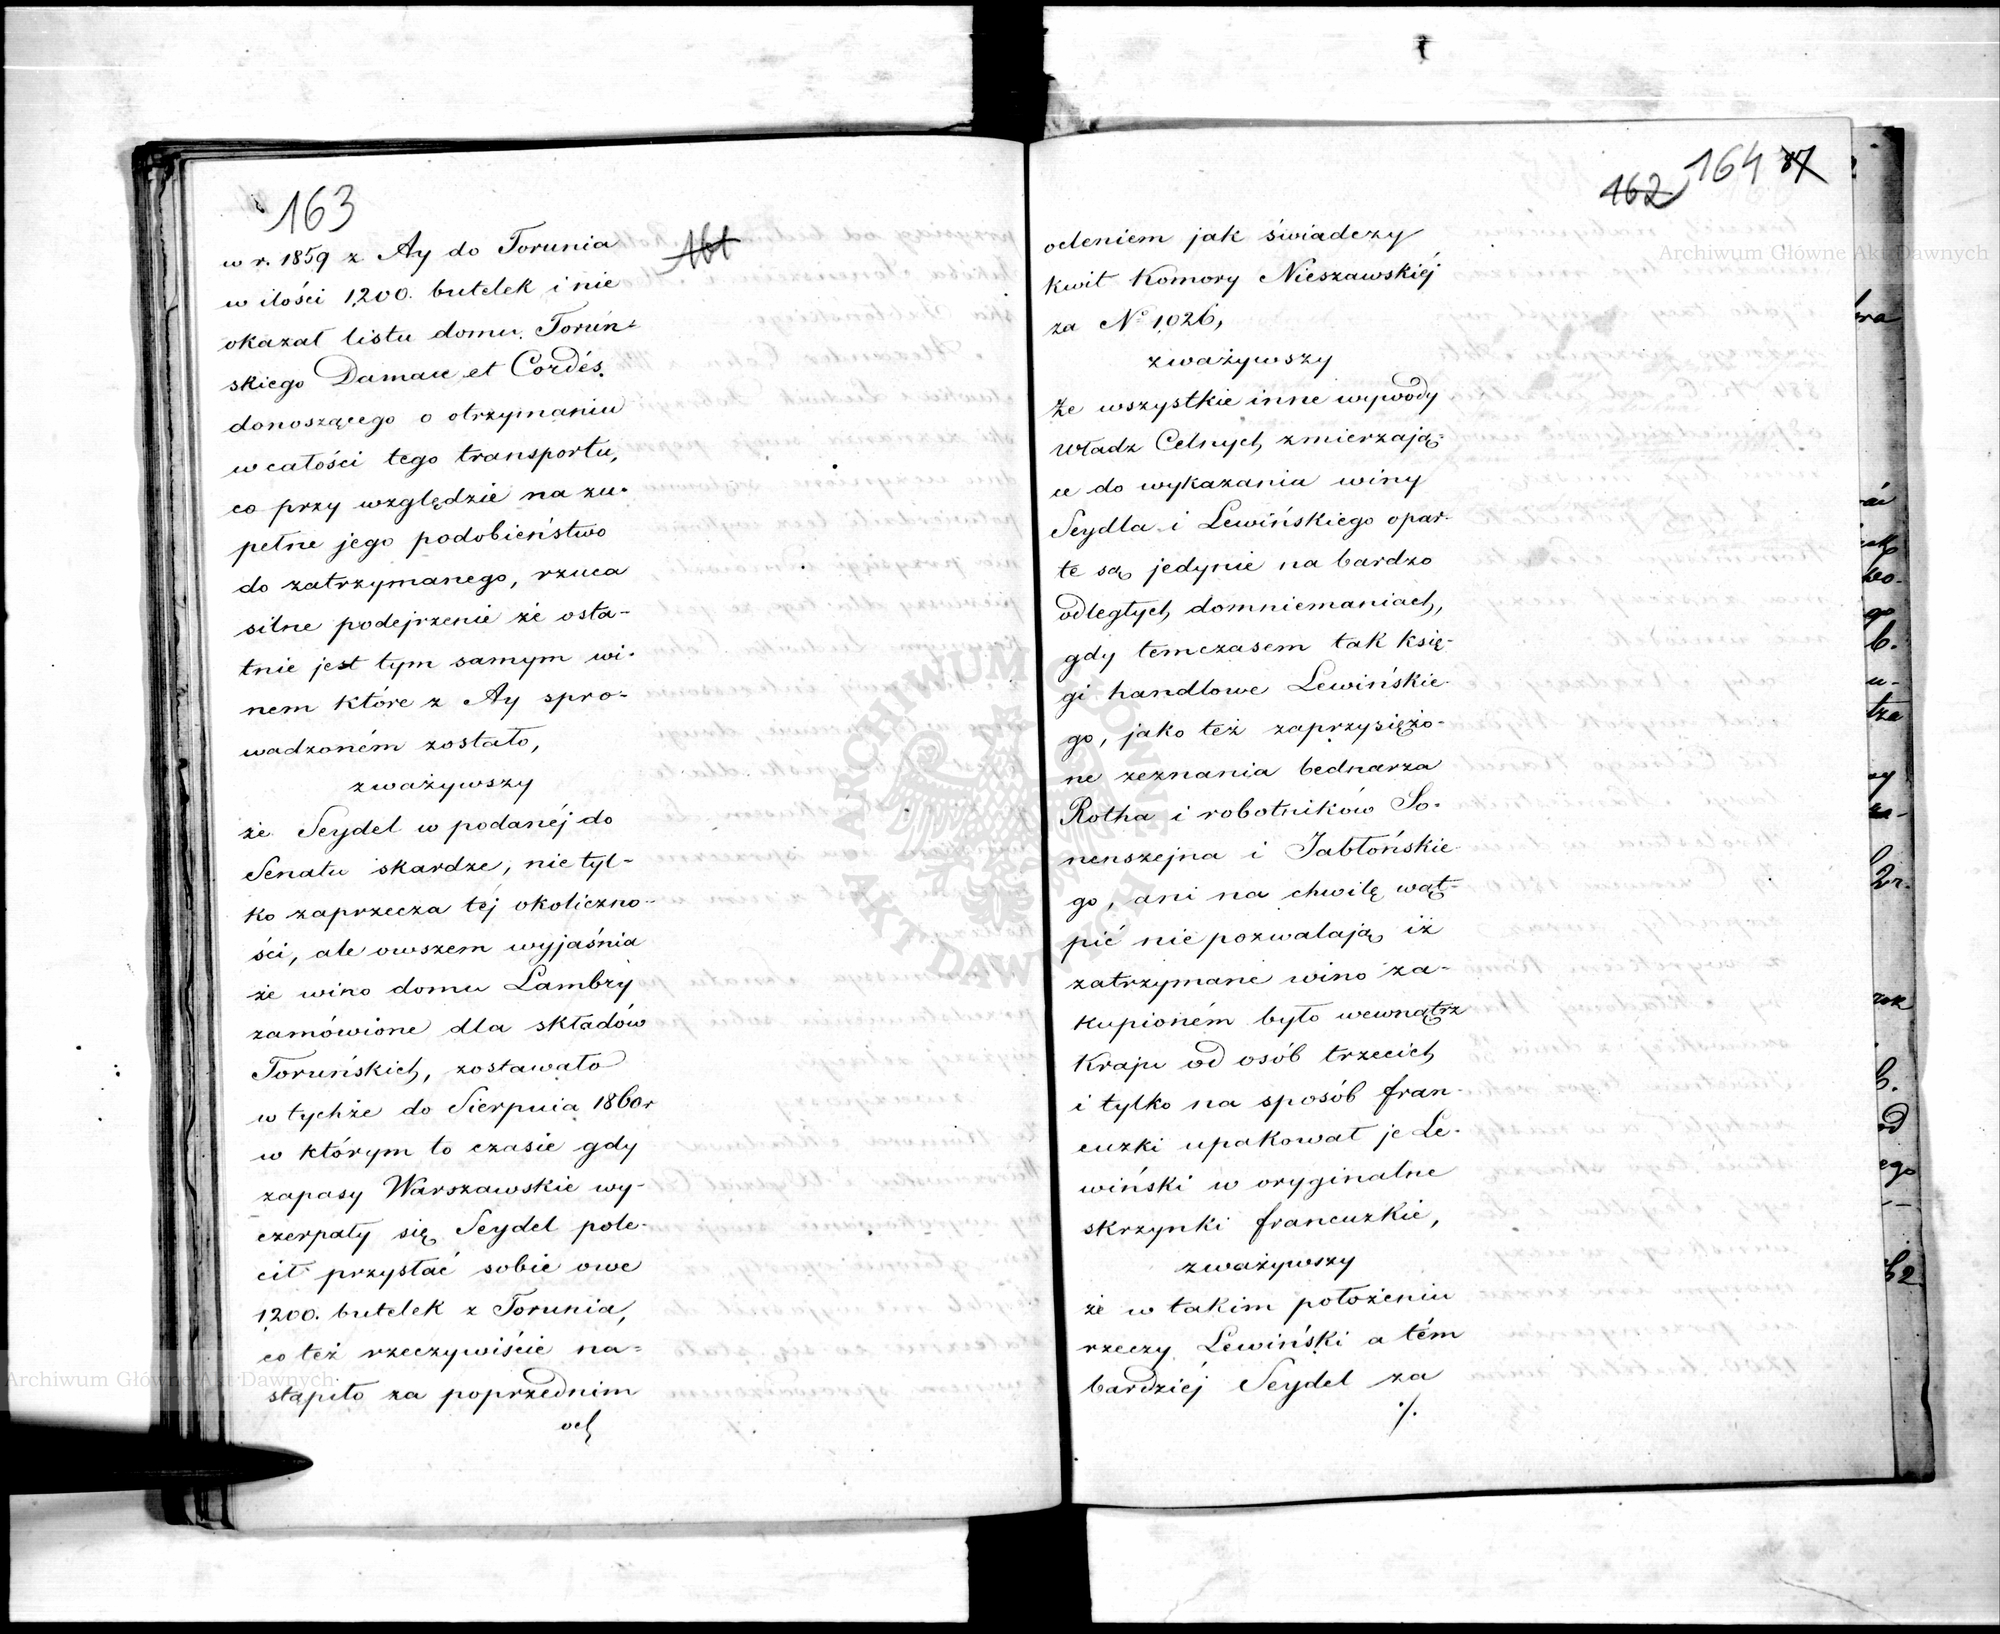 163
161
w r. 1859 z Ay do Torunia
w ilości 1200. butelek i nie
okazał listu domu Toruń-
skiego Damau et Cordés,
donoszącego o otrzymaniu
w całości tego transportu,
co przy względzie na zu-
pełne jego podobieństwo
do zatrzymanego, rzuca
silne podejrzenie że osta-
tnie jest tym samym wi-
nem które z Ay spro-
wadzoném zostało,
zważywszy
że Seydel w podanéj do
Senatu skardze, nie tyl-
ko zaprzecza téj okoliczno-
ści, ale owszem wyjaśnia
że wino domu Lambry
zamówione dla składów
Toruńskich, zostawało
w tychże do Sierpnia 1860 r
w którym to czasie gdy
zapasy Warszawskie wy-
czerpały się, Seydel pole-
cił przysłać sobie owe
1200. butelek z Torunia,
co też rzeczywiście na-
stąpiło za poprzednim
ocl
162 164 87
ocleniem jak świadczy
kwit Komory Nieszawskiéj
za No 1026,
zważywszy
że wszystkie inne wywody
Władz Celnych, zmierzają-
ce do wykazania winy
Seydla i Lewińskiego opar-
te są, jedynie na bardzo
odległych domniemaniach,
gdy temczasem tak księ-
gi handlowe Lewińskie-
go, jako też zaprzysiężo-
ne zeznania bednarza
Rotha i robotników So-
nenszejna i Jabłońskie-
go, ani na chwilę wąt-
pić nie pozwalają, iż
zatrzymane wino za-
kupioném było wewnątrz
Kraju od osób trzecich
i tylko na sposób fran-
cuzki upakował je Le-
wiński w oryginalne
skrzynki francuzkie,
zważywszy
że w takim położeniu
rzeczy Lewiński a tém
bardziéj Seydel za
./.
Archiwum Główne Akt Dawnych
Archiwum Główne Akt Dawnych
ARCHIWUM GŁÓWNE
AKT DAWNYCH